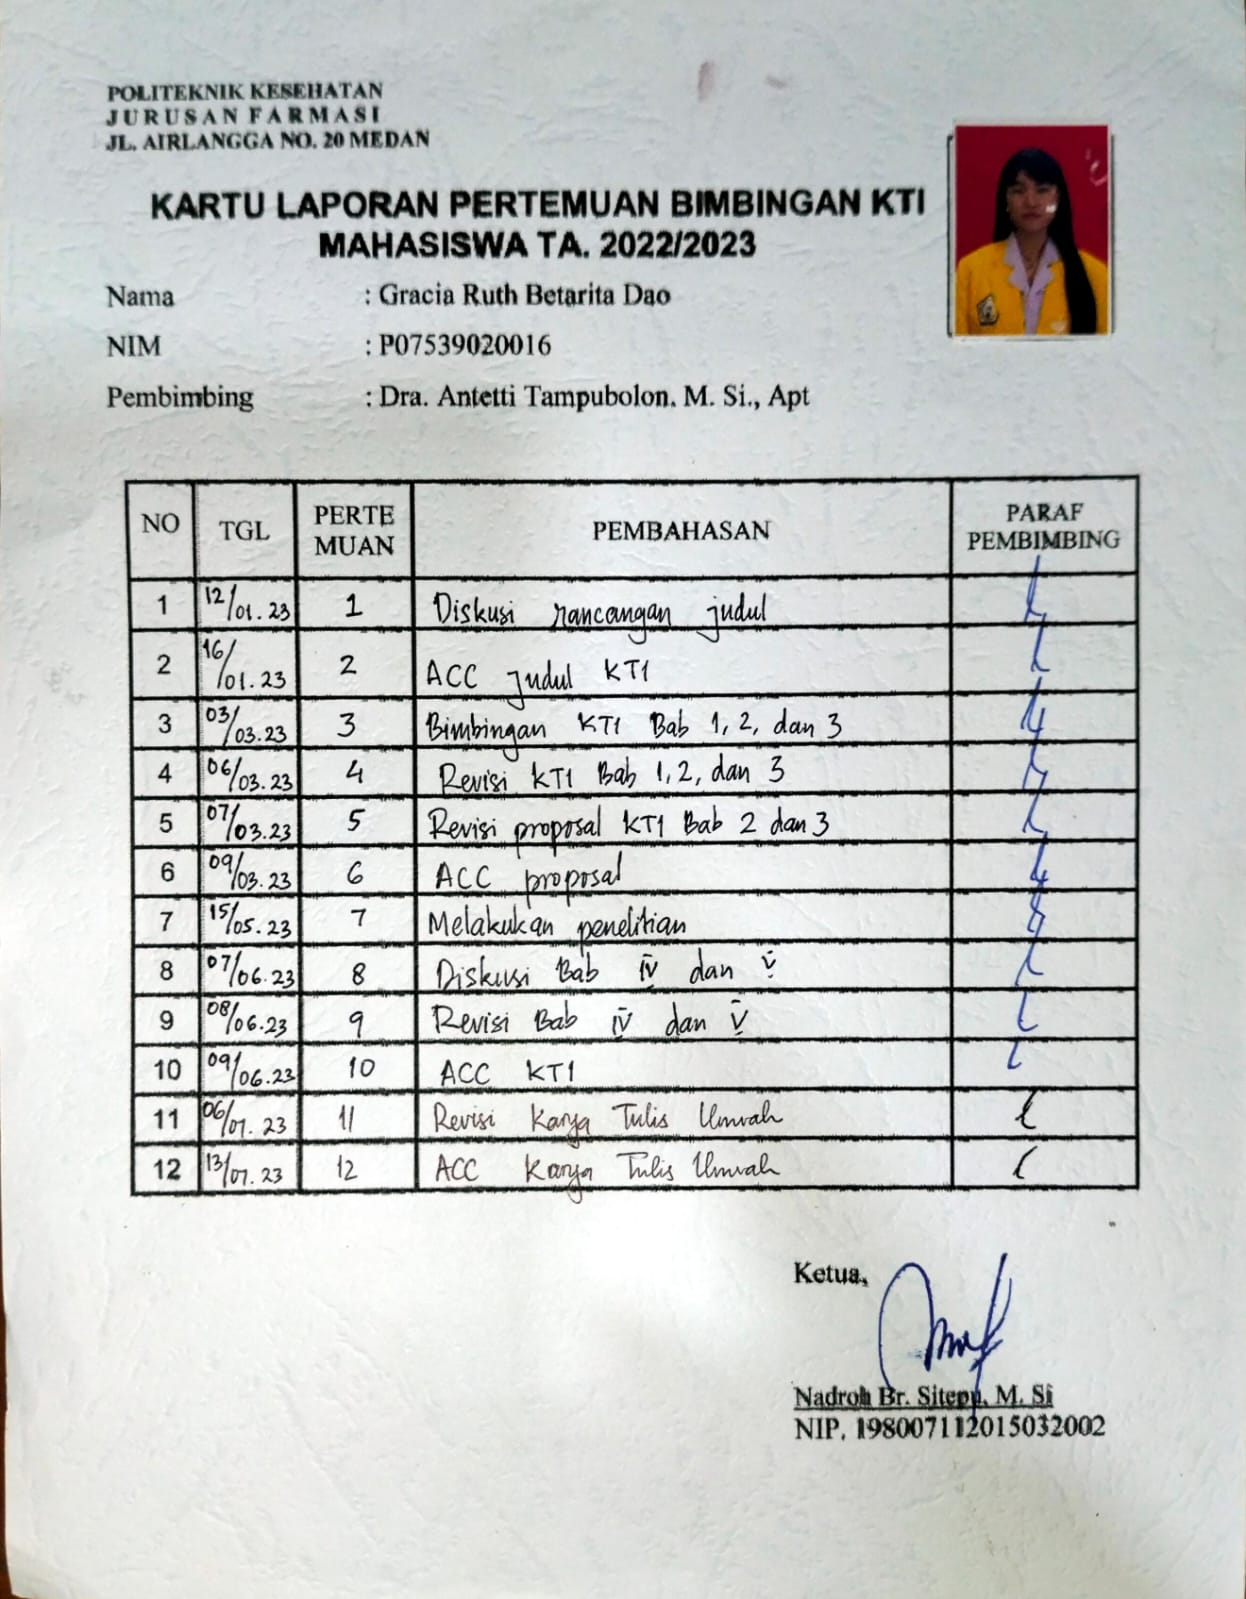 POLITEKNIK KESEHATAN
JURUSAN FARMASI
JL. AIRLANGGA NO. 20 MEDAN
KARTU LAPORAN PERTEMUAN BIMBINGAN KTI
MAHASISWA TA. 2022/2023
Nama : Gracia Ruth Betarita Dao
NIM : P07539020016
Pembimbing : Dra. Antetti Tampubolon. M. Si., Apt
NO TGL PERTE MUAN PEMBAHASAN PARAF PEMBIMBING
1 12/01.23 1 Diskusi rancangan judul
2 16/01.23 2 ACC judul KTI
3 03/03.23 3 Bimbingan KTI Bab 1, 2, dan 3
4 06/03.23 4 Revisi KTI Bab 1, 2, dan 3
5 07/03.23 5 Revisi proposal KTI Bab 2 dan 3
6 09/03.23 6 ACC proposal
7 15/05.23 7 Melakukan penelitian
8 07/06.23 8 Diskusi Bab IV dan V
9 08/06.23 9 Revisi Bab IV dan V
10 09/06.23 10 ACC KTI
11 06/07.23 11 Revisi Karya Tulis Ilmiah
12 13/07.23 12 ACC Karya Tulis Ilmiah
Ketua,
Nadroh Br. Sitepu, M. Si
NIP. 198007112015032002